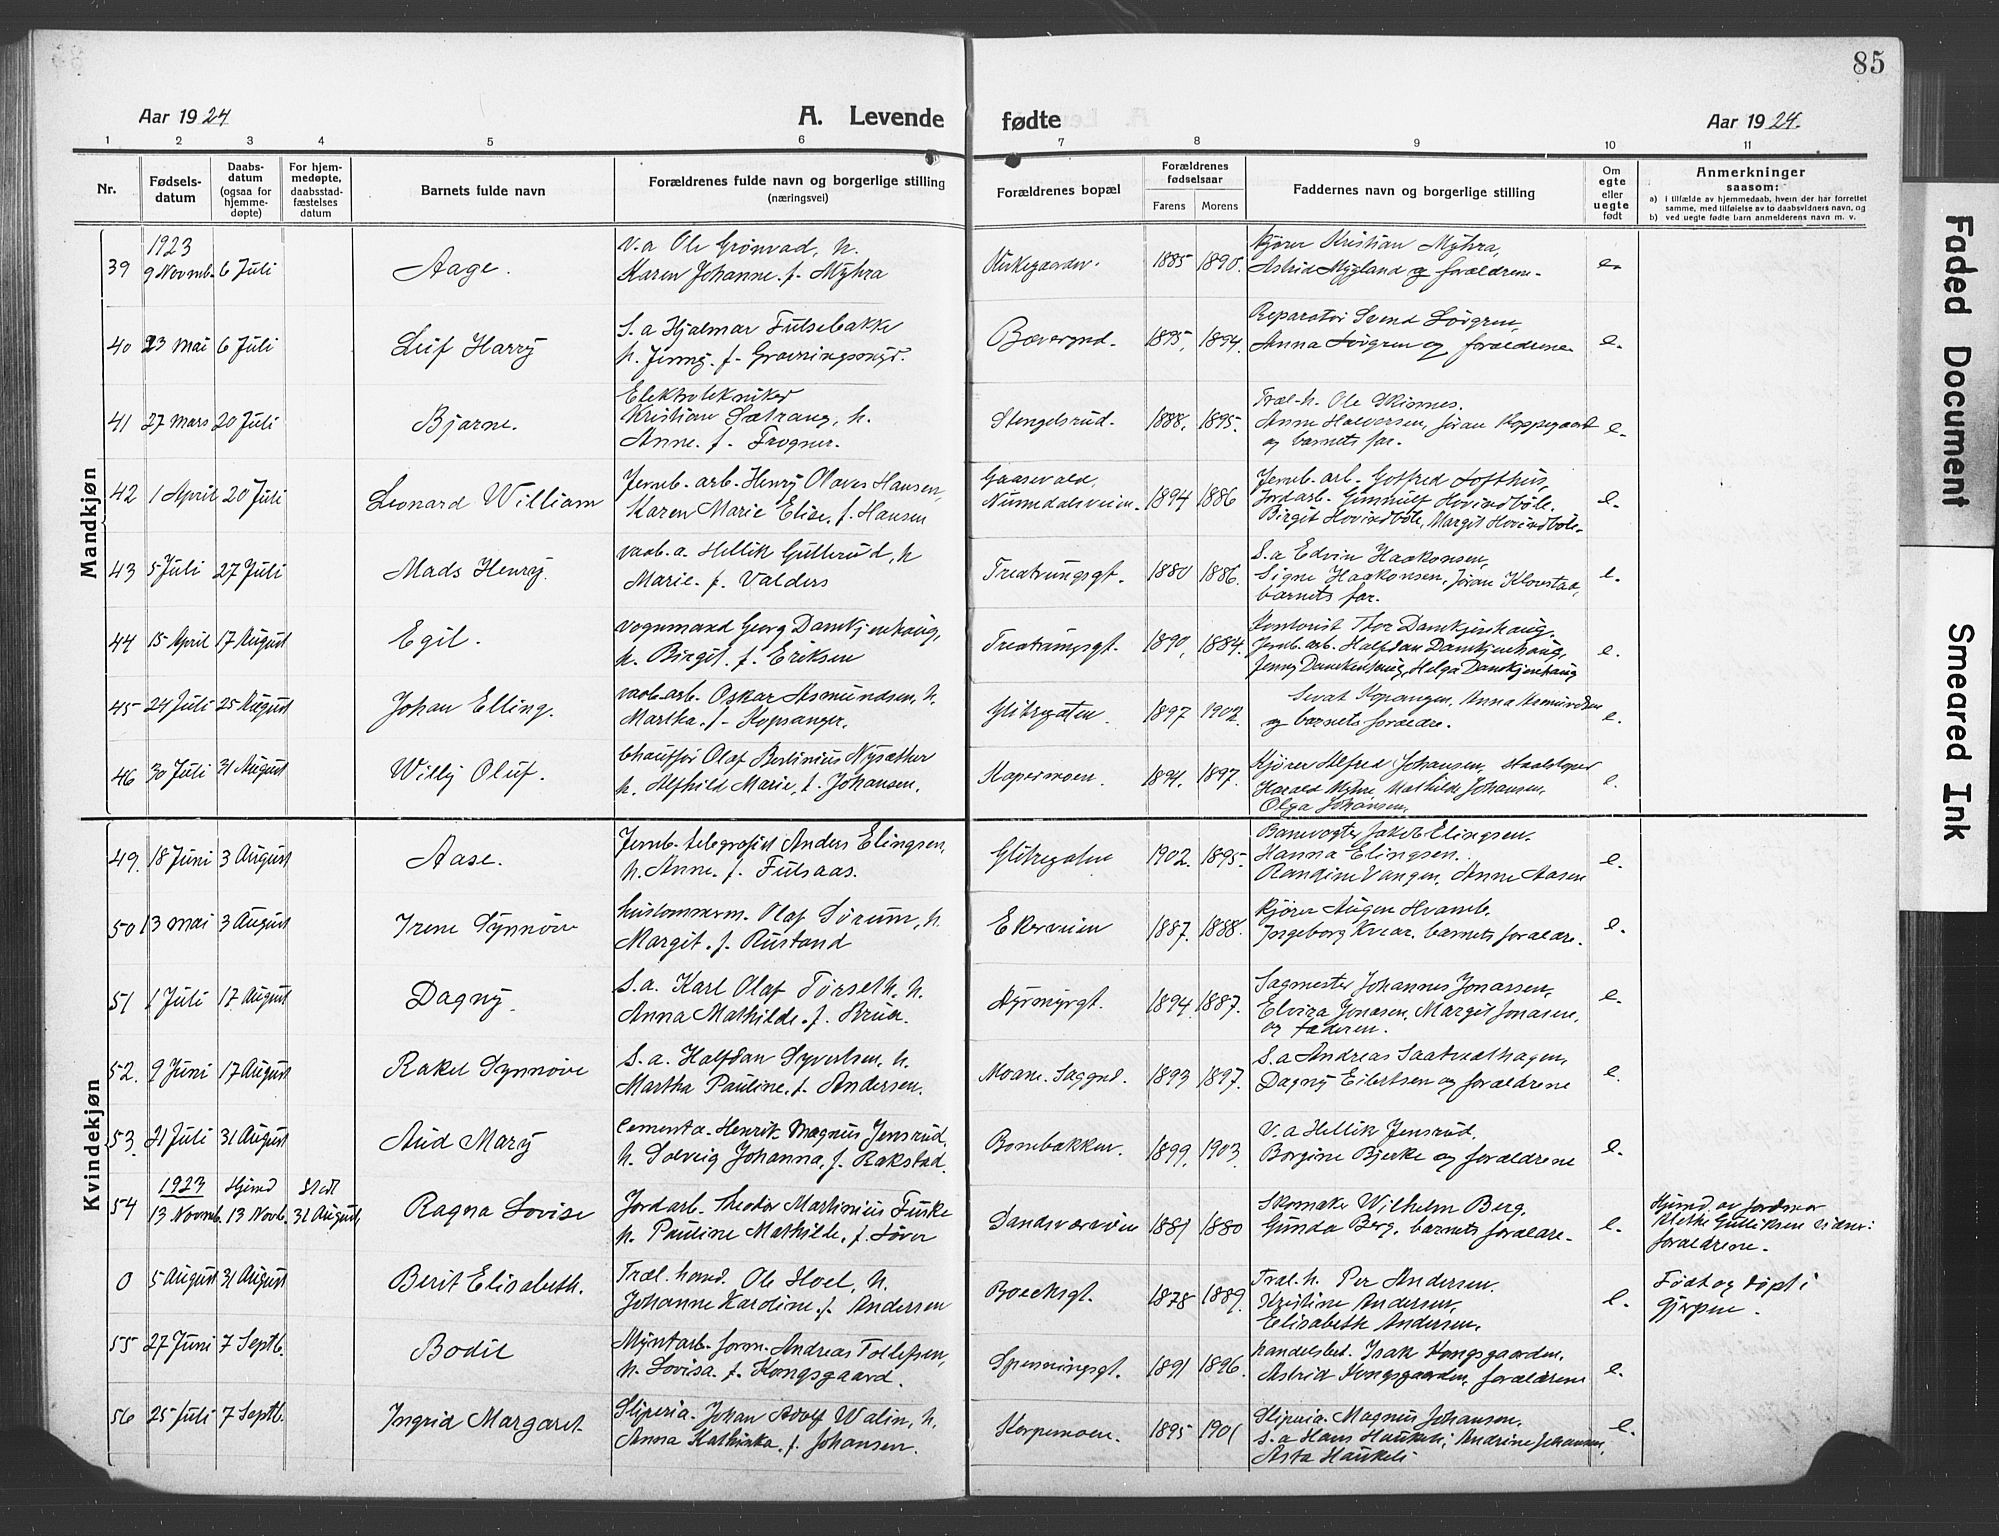 85
Aar 1924
A. Levende
fødte
Aar 1924.
1 2 3 4 5 6 7 8 9 10 11
Nr.
Fødsels-
datum
Daabs-
datum
(ogsaa for
hjemme-
døpte)
For hjem-
medøpte,
daabsstad-
fæstelses
datum
Barnets fulde navn
Forældrenes fulde navn og borgerlige stilling
(næringsvei)
Forældrenes bopæl
Forældrenes
fødselsaar
Farens Morens
Faddernes navn og borgerlige stilling
Om
egte
eller
uegte
født
Anmerkninger
saasom:
a) I tilfælde av hjemmedaab, hvem der har forrettet
samme, med tilføielse av to daabsvidners navn, og
b) ved uegte fødte barn anmelderens navn m. v.
Mandkjøn
39 1923
9 Novmb. 6 Juli
Aage.
V.a Ole Grønvad, h.
Karen Johanne. f. Myhra
1885 1890.
Kjører Kristian Myhra,
Astrid Mygland og forældrene.
e.
40 23 Mai 6 Juli
Leif Harry
S.a Hjalmar Fulsebakke
h. Jenny. f. Gravningsmyr.
Bævergrd.
1895, 1894.
Reparatør Svend Løvgren,
Anna Løvgren og forældrene
e.
41 27 Mars 20 Juli
Bjarne.
Elektrotekniker
Kristian Sætrang, h.
Anne. f. Frogner.
Stengelsrud.
1888, 1895.
Træl.h. Ole Skinnes.
Anne Halvorsen, Jøran Koppegaard
og barnets far.
e.
42 1 April 20 Juli
Leonard William
Jernb. arb. Henry Olaves Hansen,
Karen Marie Elise, f. Hansen
Gaasevald,
Numedalsveien.
1894 1886
Jernb. arb. Gotfred Lofthus,
Jordarb. Gunnulf Hovindbøle.
Birgit Hovindbøle, Margit Hovindbøle.
e.
43 5 Juli 27 Juli
Mads Henry.
vaab.a. Hellik Gulterud, h
Marie. f. Valders
1880 1886.
S.a Edvin Haakonsen,
Signe Haakonsen, Jøran Klovstad,
barnets far.
e.
44 15 April 17 August
Egil.
vognmand Georg Damkjenhaug,
h. Birgit. f. Eriksen
1890, 1884.
Kontorist Thor Damkjenhaug,
Jernb. arb. Halfdan Damkjenhaug,
Jenny Damkjenhaug, Helga Damkjenhaug
e.
45 24 Juli 25 August
Johan Elling.
vaab.arb. Oskar Asmundsen, h.
Martha. f. Kopsanger.
Glitregaten
1897 1902.
Sevat Kopangen, Anna Asmundsen
og barnets forældre.
e.
46 30 Juli 31 August
Willy Oluf.
Chauffør Olaf Berlinius Nysæther
h. Alfhild Marie, f. Johansen.
1894. 1897.
Kjører Alfred Johansen,
Harald Myhre Mathilde Johansen,
Olga Johansen.
e.
Kvindekjøn
49. 18 Juni 3 August
Aase.
Jernb. telegrafist Anders Elingsen,
h. Anne. f. Fulsaas.
Glitregaten
1902. 1895.
Banevogter Jakob Elingsen.
Hanna Elingsen.
Randine Vangen, Anne Aasen
e.
50 13 Mai 3 August
Irene Synnøve
Olaf Sørum, h.
Margit. f. Rustand
Ekerveien
1887. 1888.
Kjører Augen Hvamb.
Ingeborg Kviar. barnets forældre.
e.
51 1 Juli 17 August
Dagny.
S.a. Karl Olaf Torseth. h.
Anna Mathilde. f. Brua.
Hyrmyrgt.
1894. 1887.
Sagmester Johannes Jonassen,
Elvira Jonasen. Margit Jonasen.
og faderen.
e.
52. 9 Juni 17 August
Rakel Synnøve
S.a. Halfdan Syvertsen, h.
Martha Pauline, f. Andersen.
Moane. Saggrd.
1893 1897.
S.a Andreas Saatvedthagen,
Dagny Eilertsen og forældrene
e.
53. 21 Juli 31 August
Aud Mary
Cementa. Henrik Magnus Jensrud,
h. Solveig Johanna, f. Rakstad.
Bombakken.
1899. 1903.
V.a Hellik Jensrud.
Borgine Bjerke og forældrene
e.
54 1923
13 Novmb.
Hjemd
13 Novb.
Stadf
31 August
Ragna Lovise
Jordarb. Theodor Martinius Funke
h. Pauline Mathilde, f. Løver
Sandsværveien
1881 1880
Skomaker Wilhelm Berg.
Gunda Berg, barnets forældre.
e.
Hjemd. av jordmor
Alette Gulliksen vidner:
forældrene.
0 5 August 31 August
Berit Elisabeth.
Træl. hand. Ole Hoel, h.
Johanne Karoline. f. Andersen
Boecksgt.
1878 1889.
Træl. h. Per Andersen.
Kristine Andersen,
Elisabeth Andersen.
e.
Født og døpt i
Gjerpen.
55 27 Juni 7 Septb.
Bodil
Myntarb. form. Andreas Tollefsen,
h. Lovisa. f. Kongsgaard.
Spenningsgt.
1891 1896.
Handelsbet. Isak Kongsgaarden,
Astrid Kongsgaarden, forældrene
e.
56 25 Juli 7 Septb.
Ingrid Margaret.
Sliperia. Johan Adolf Walin, h.
Anna Kathinka, f. Johansen.
Korpemoen.
1895 1901
Sliperia. Magnus Johansen,
S.a Hans Haukeli, Andrine Johansen,
Asta Haukeli
e.
Faded Document
Smeared Ink